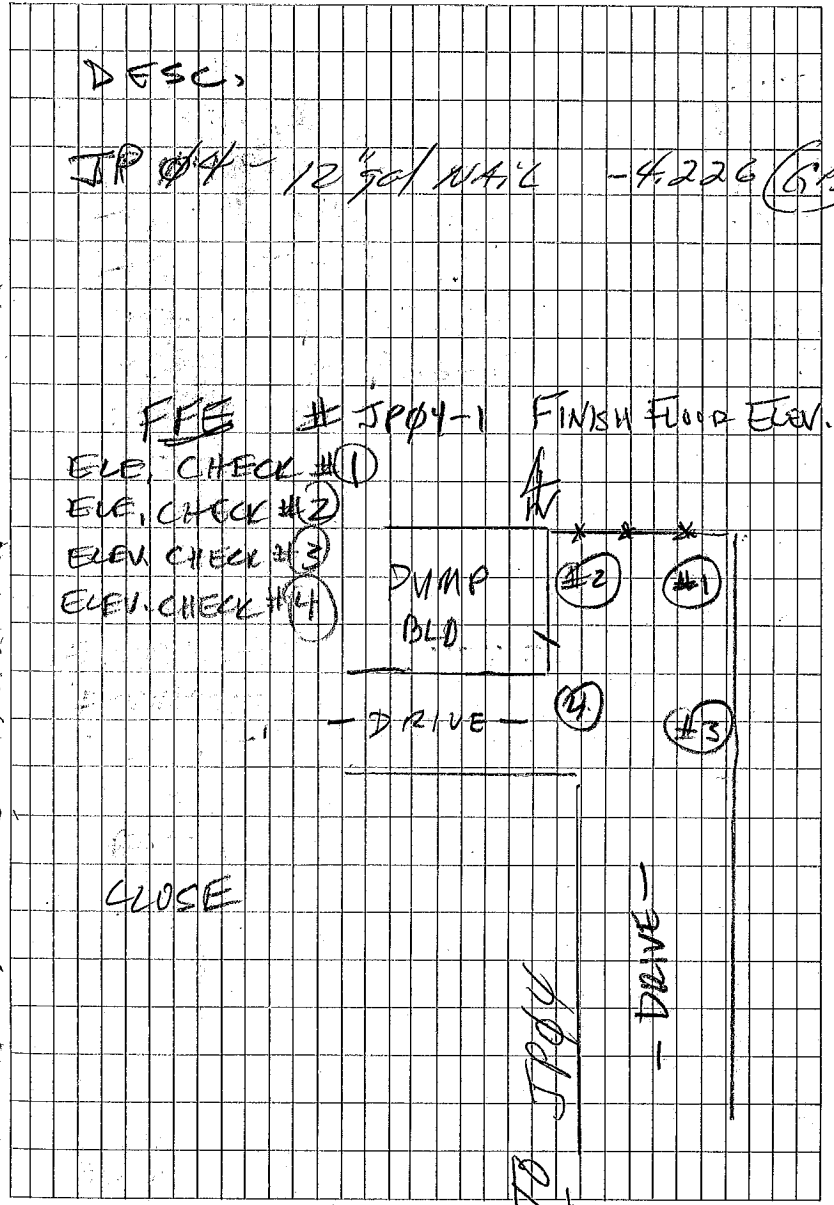 DESC,
JP Ø4 - 12" gal NAiL -4.226
FFE # JPØ4-1 FINISH FLOOR ELEV.
ELE. CHECK #1
ELE. CHECK #2
ELEV. CHECK #3
ELEV. CHECK #4
N
PUMP
BLD
#2
#1
- DRIVE -
4
#3
CLOSE
- DRIVE -
TO JPØ4